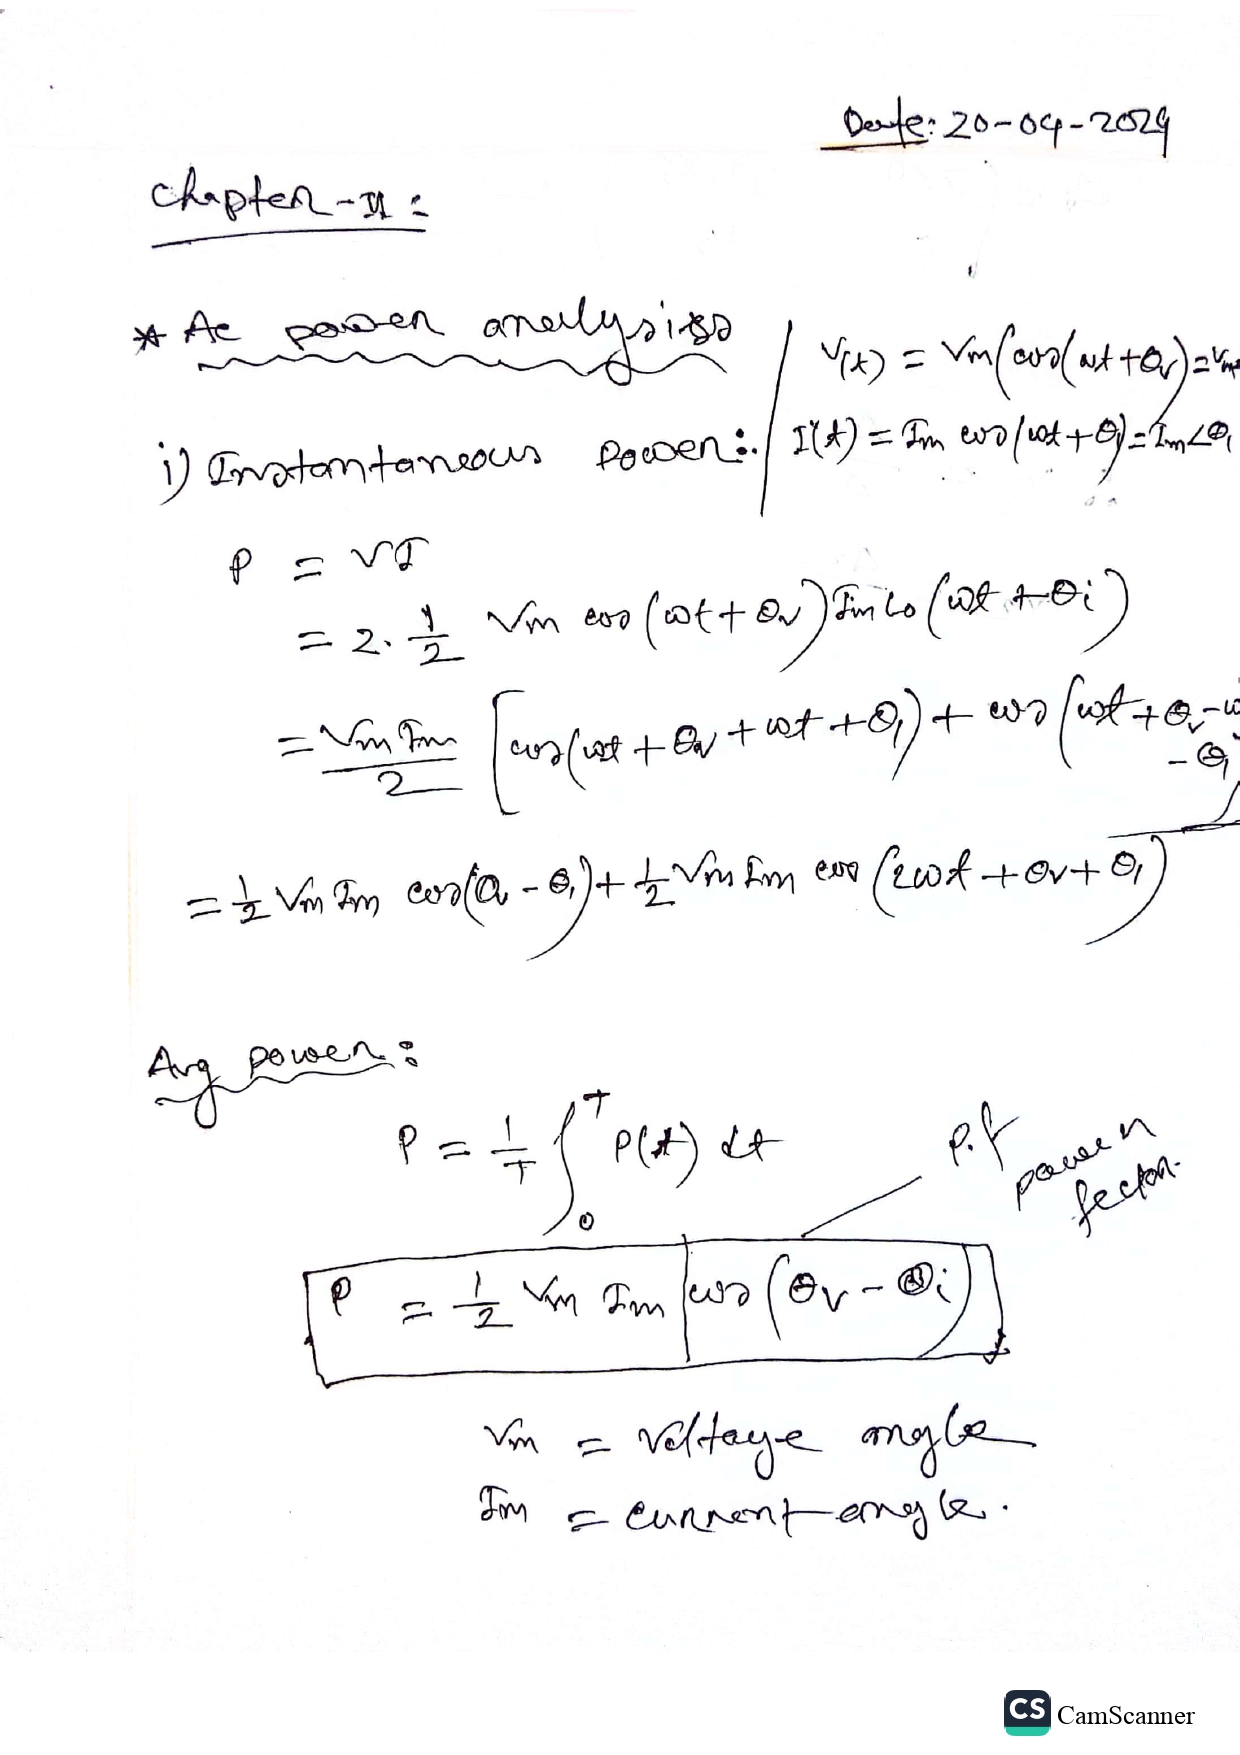 Date: 20-04-2024
Chapter-II:
* Ac power analysis
V(t) = Vm(cos(ωt+θv)=Vm
i) Instantaneous Power:.
I(t) = Im cos(ωt+θi)=Im∠θi
P = VI
= 2. 1/2 Vm cos(ωt+θv) Im Co(ωt+θi)
= VmIm/2 [cos(ωt+θv+ωt+θi)+cos(ωt+θv-ω
-θi
= 1/2 Vm Im cos(θv-θi)+1/2 Vm Im cos(2ωt+θv+θi)
Avg power:
P = 1/T ∫₀ᵀ P(t) dt
p.f
power
factor.
P = 1/2 Vm Im cos(θv-θi)
Vm = Voltage angle
Im = current angle.
CS CamScanner